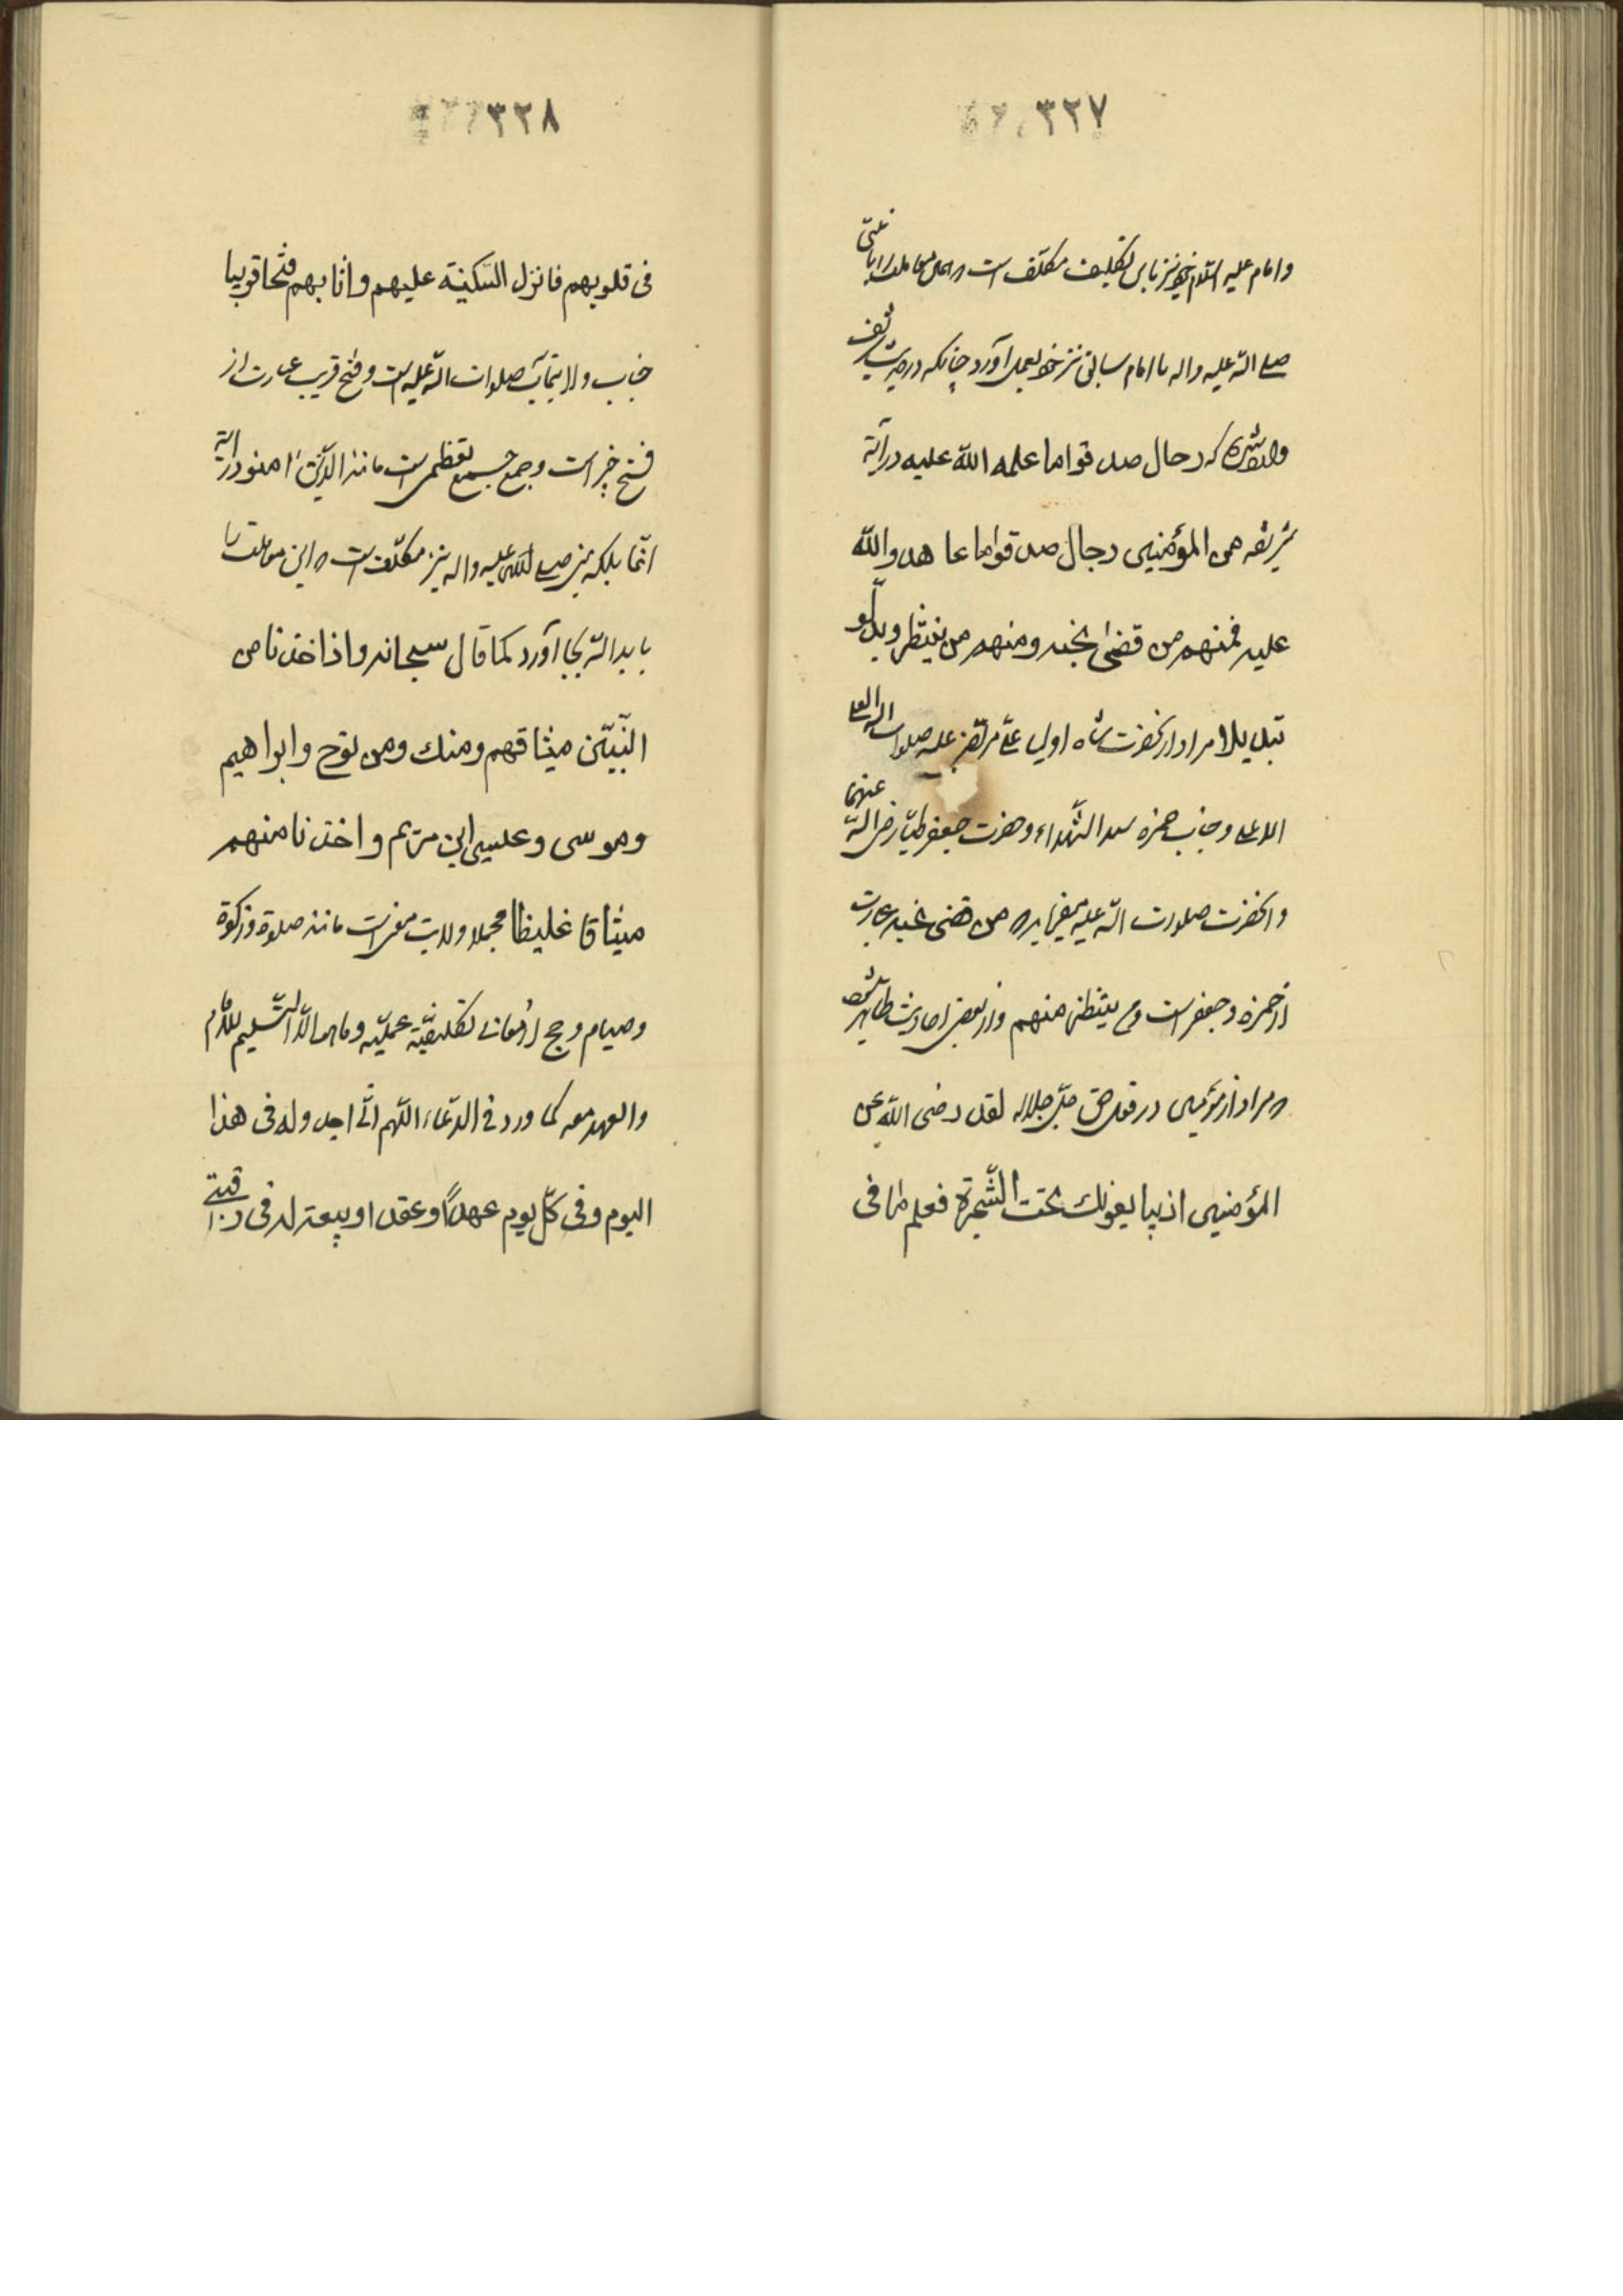 ٣٢٧
و امام علیه السلام خود نیز باین تکلیف مکلف است که این معامله را با نبی
صلی الله علیه واله یا امام سابق نیز خود بعمل آورد چنانکه در حدیث شریف
که رجال صدقوا ما عاهدوا الله علیه در آیة
شریفه من المؤمنین رجال صدقوا ما عاهدوا الله
علیه فمنهم من قضی نحبه و منهم من ینتظر و ما بدلوا
تبدیلا مراد از آنحضرت شاه اولیا علی مرتضی علیه صلوات الله العلی
الاعلی و جناب حمزه سید الشهداء و حضرت جعفر طیار رضی الله عنهما
و آنحضرت صلوات الله علیه میفرماید که من قضی نحبه عبارت
از حمزه و جعفر است و من ینتظر منهم و از بعض احادیث ظاهر میشود
که مراد از مؤمنین در قول حق جل جلاله لقد رضی الله عن
المؤمنین اذ یبایعونک تحت الشجرة فعلم ما فی
٣٢٨
فی قلوبهم فانزل السکینة علیهم و اثابهم فتحا قریبا
جناب ولایتمآب صلوات الله علیه است و فتح قریب عبارت از
فتح خیبر است و جمع جمع تعظیمی است مانند الذین امنوا در آیة
انما بلکه نبی صلی الله علیه واله نیز مکلف است که این معاملت را
با ید الله بجا آورد کما قال سبحانه و اذ اخذنا من
النبیین میثاقهم و منک و من نوح و ابراهیم
و موسی و عیسی ابن مریم و اخذنا منهم
میثاقا غلیظا مجملا ولایت مانند صلوة و زکوة
و صیام و حج تکلیفیة عملیه و التسلیم للامام
و العهد معه کما ورد فی الدعاء اللهم انی اجدد له فی هذا
الیوم و فی کل یوم عهدا و عقدا و بیعة له فی رقبتی